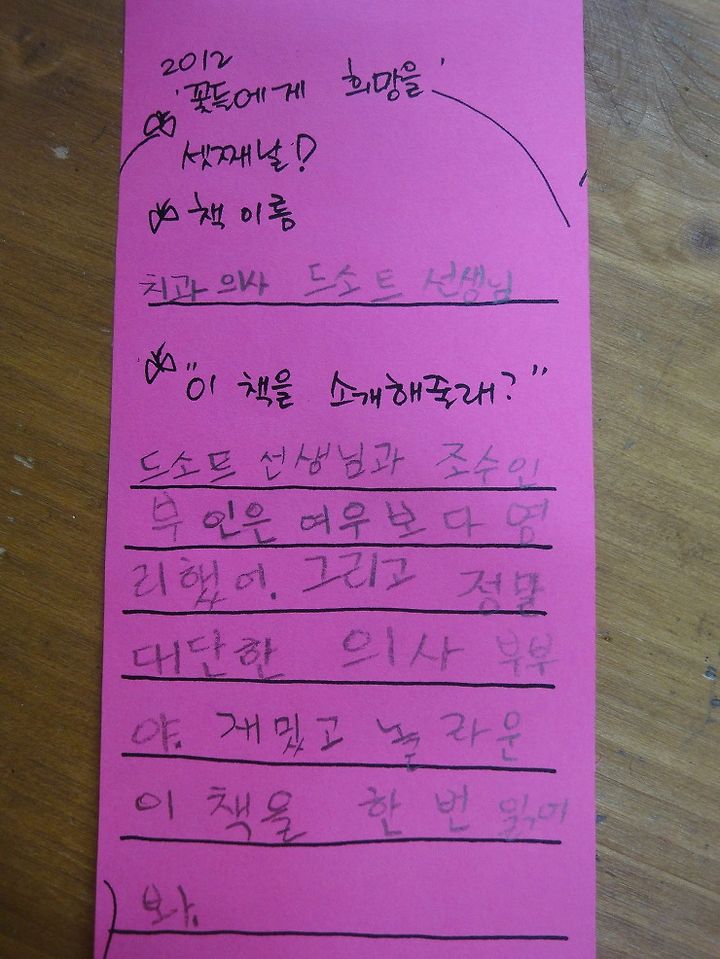 2012
'꽃들에게 희망을'
셋째날!
책 이름
치과 의사 드소트 선생님
"이 책을 소개해줄래?"
드소트 선생님과 조수인
부인은 여우보다 영
리했어. 그리고 정말
대단한 의사 부부
야. 재밌고 놀라운
이 책을 한 번 읽어
봐.